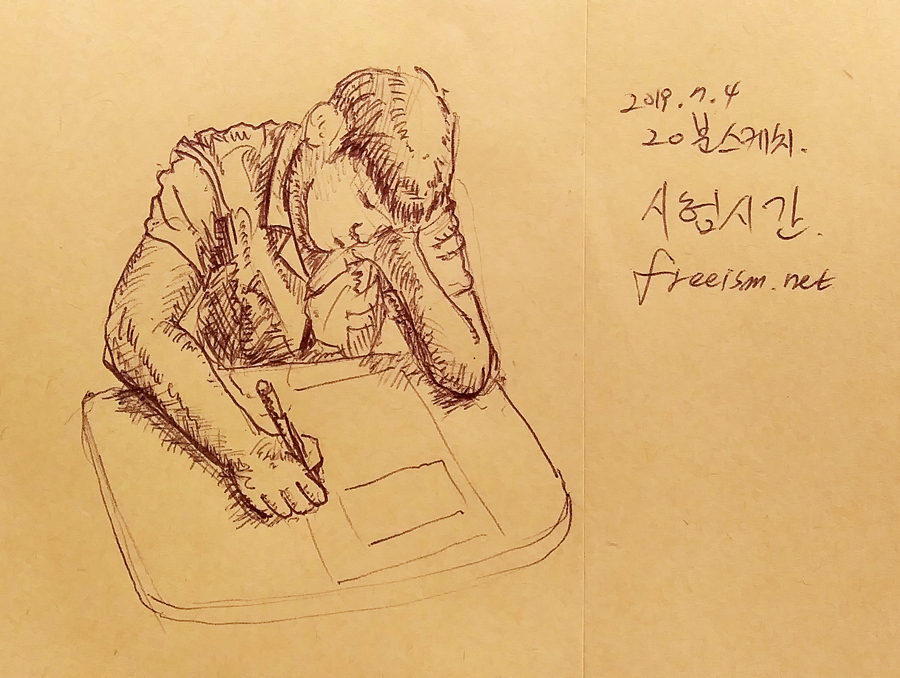 2019.7.4
20분스케치.
시험시간.
freeism.net